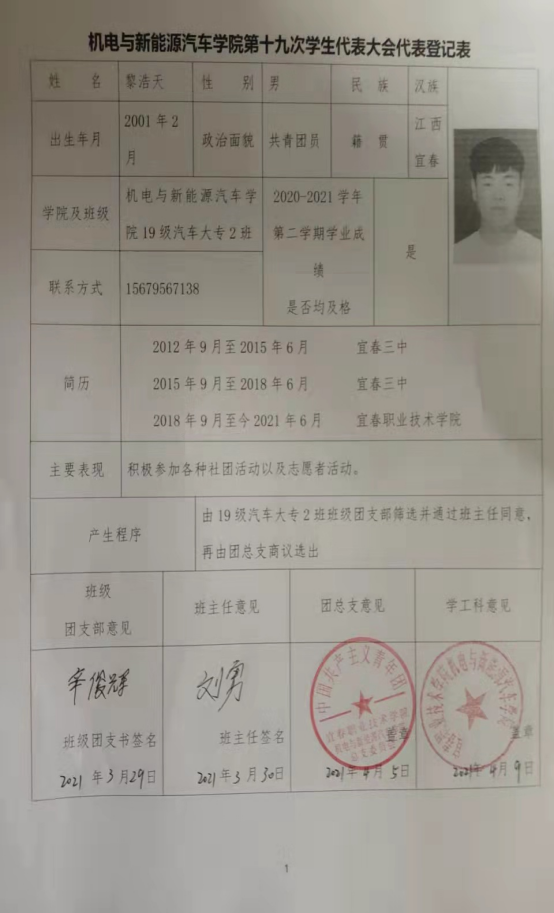 机电与新能源汽车学院第十九次学生代表大会代表登记表
姓 名 黎浩天 性 别 男 民 族 汉族
出生年月 2001 年 2 月 政治面貌 共青团员 籍 贯 江西宜春
学院及班级 机电与新能源汽车学院 19 级汽车大专 2 班
2020-2021 学年第二学期学业成绩是否均及格 是
联系方式 15679567138
简历
2012 年 9 月至 2015 年 6 月 宜春三中
2015 年 9 月至 2018 年 6 月 宜春三中
2018 年 9 月至今 2021 年 6 月 宜春职业技术学院
主要表现 积极参加各种社团活动以及志愿者活动。
产生程序
由 19 级汽车大专 2 班班级团支部筛选并通过班主任同意,
再由团总支商议选出
班级团支部意见 班主任意见 团总支意见 学工科意见
刘勇
中国共产主义青年团
宜春职业技术学院
班级团支书签名 班主任签名 盖章 盖章
2021 年 3 月 29 日 2021 年 3 月 30 日 2021 年 4 月 5 日 2021 年 4 月 9 日
1